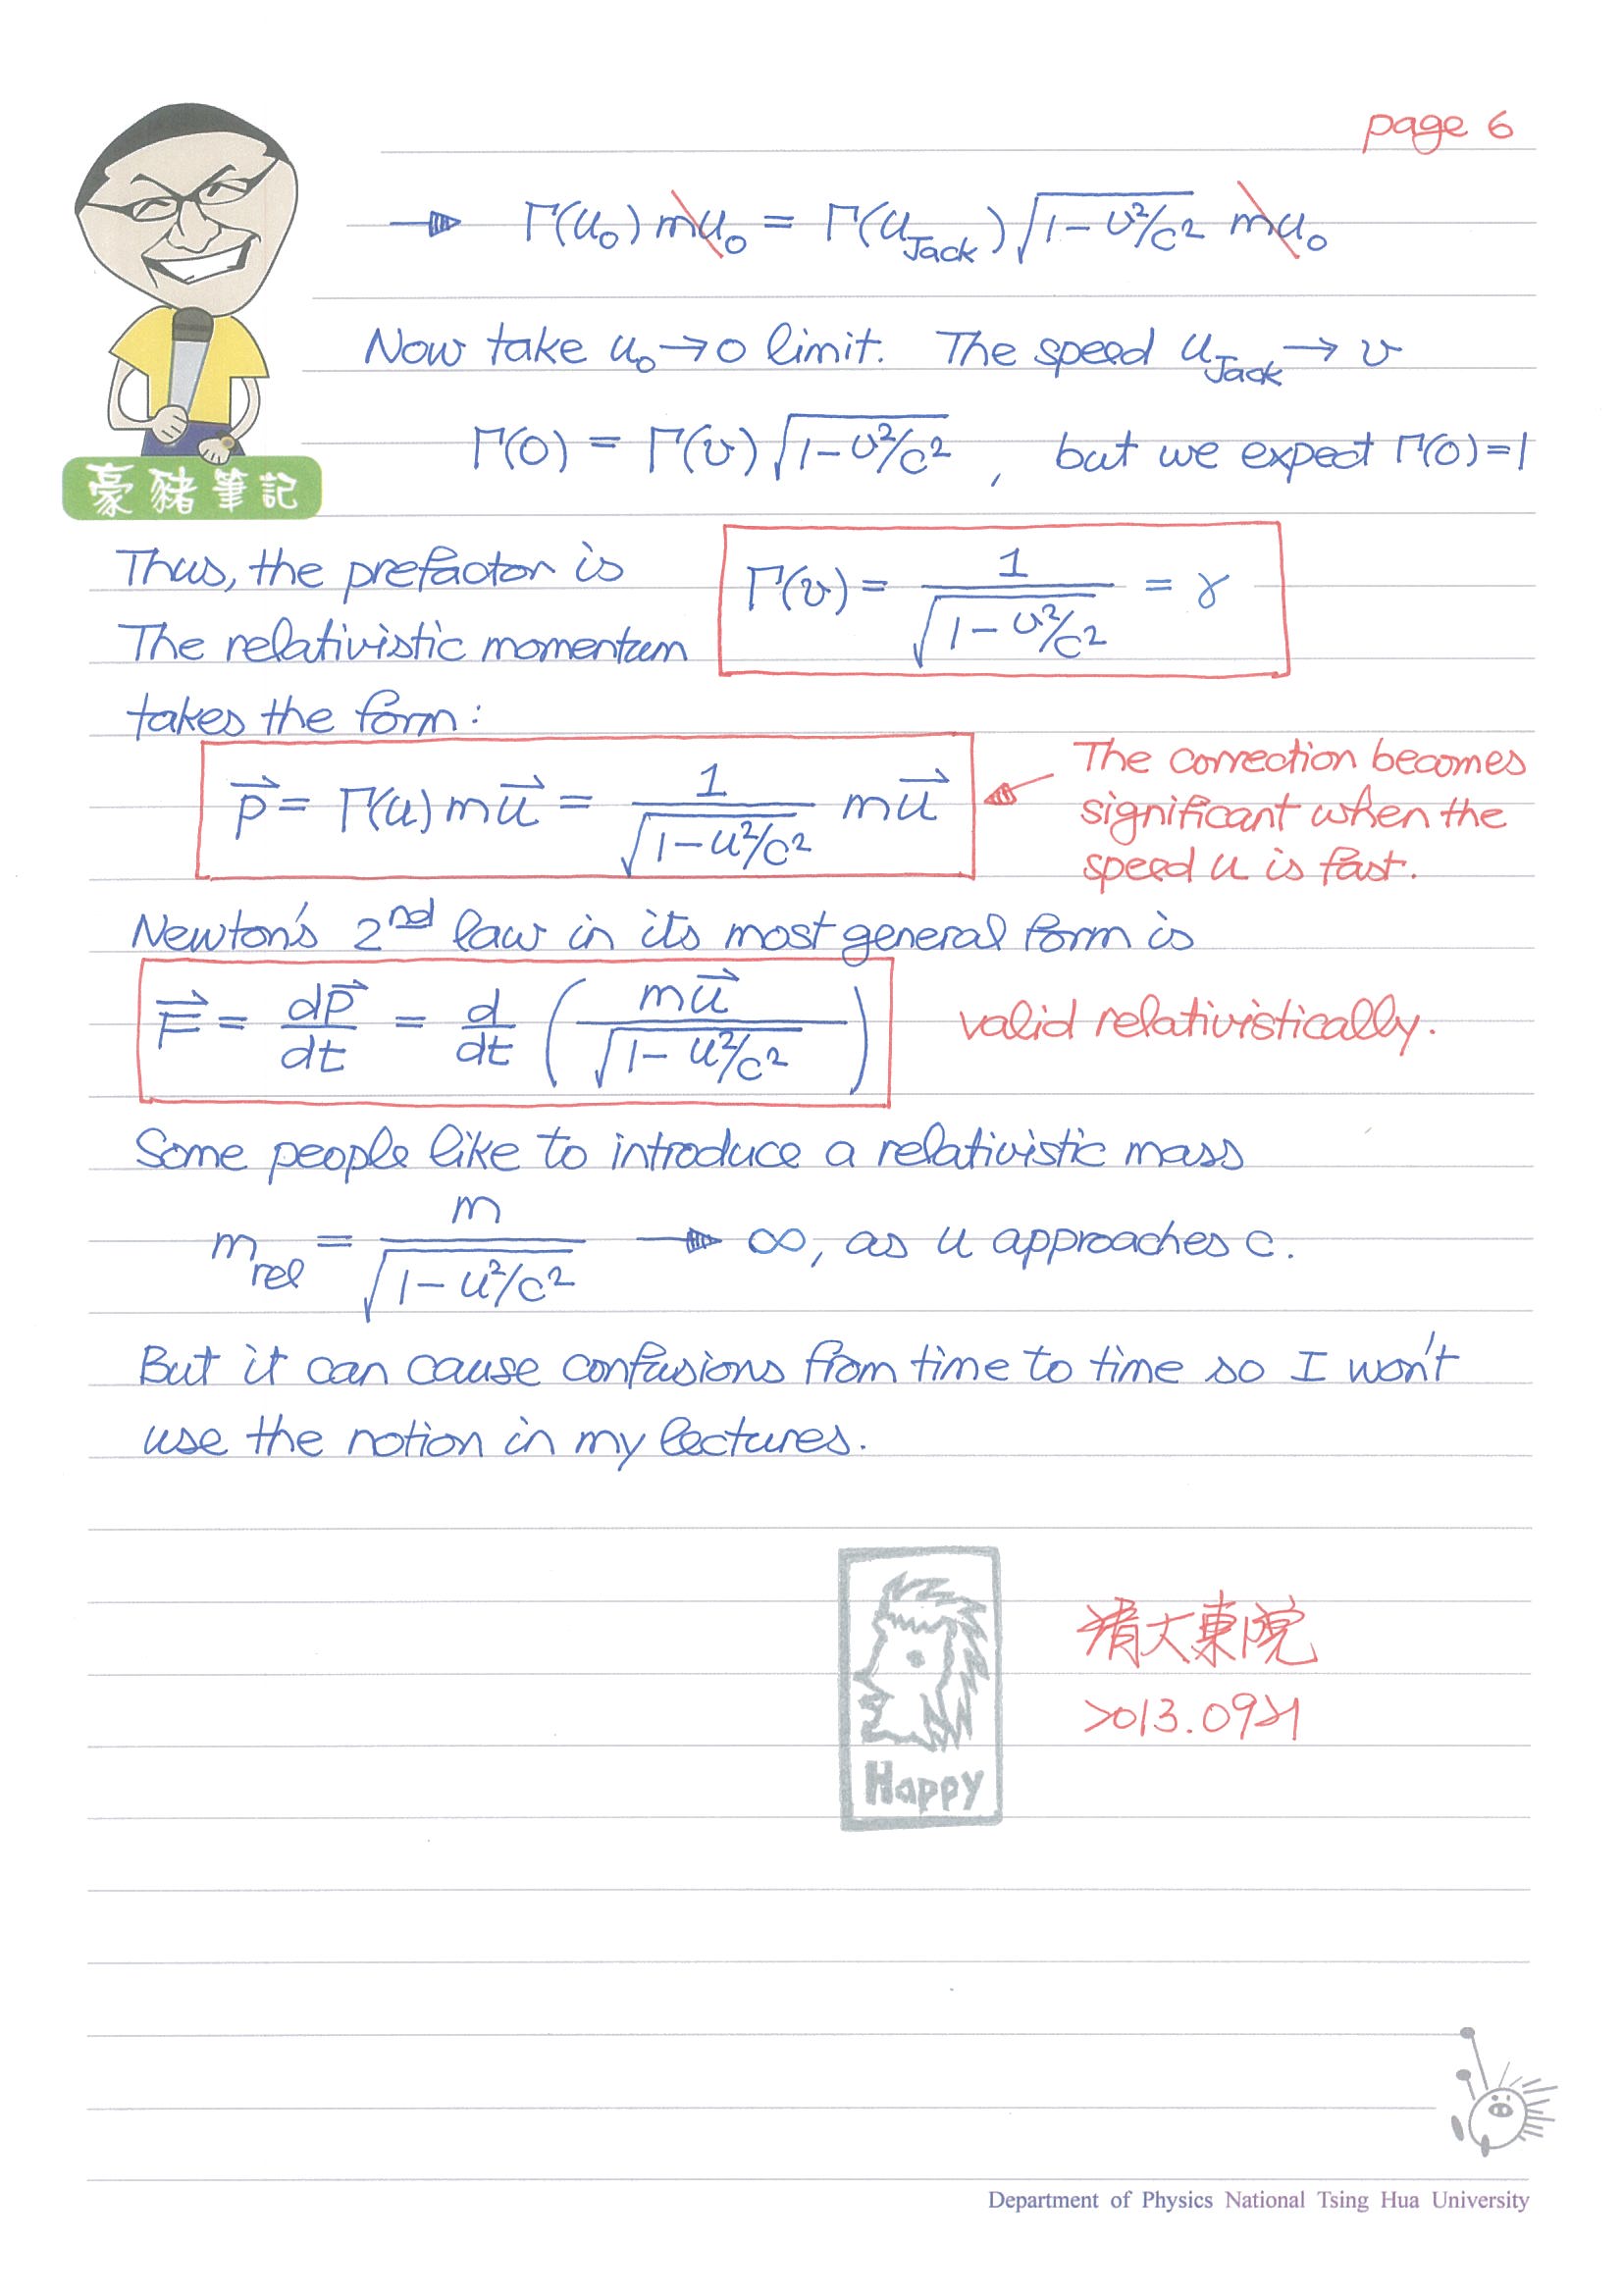 page 6
→ Γ(u₀) mu₀ = Γ(u_Jack) √(1-v²/c²) mu₀
Now take u₀→0 limit. The speed u_Jack → v
Γ(0) = Γ(v) √(1-v²/c²) , but we expect Γ(0)=1
豪豬筆記
Thus, the prefactor is Γ(v) = 1/√(1-v²/c²) = γ
The relativistic momentum
takes the form:
p⃗ = Γ(u) m u⃗ = 1/√(1-u²/c²) m u⃗
The correction becomes
significant when the
speed u is fast.
Newton's 2nd law in its most general form is
F⃗ = dp⃗/dt = d/dt ( m u⃗ / √(1-u²/c²) ) valid relativistically.
Some people like to introduce a relativistic mass
m_rel = m/√(1-u²/c²) → ∞, as u approaches c.
But it can cause confusions from time to time so I won't
use the notion in my lectures.
清大東院
2013.0921
Happy
Department of Physics National Tsing Hua University